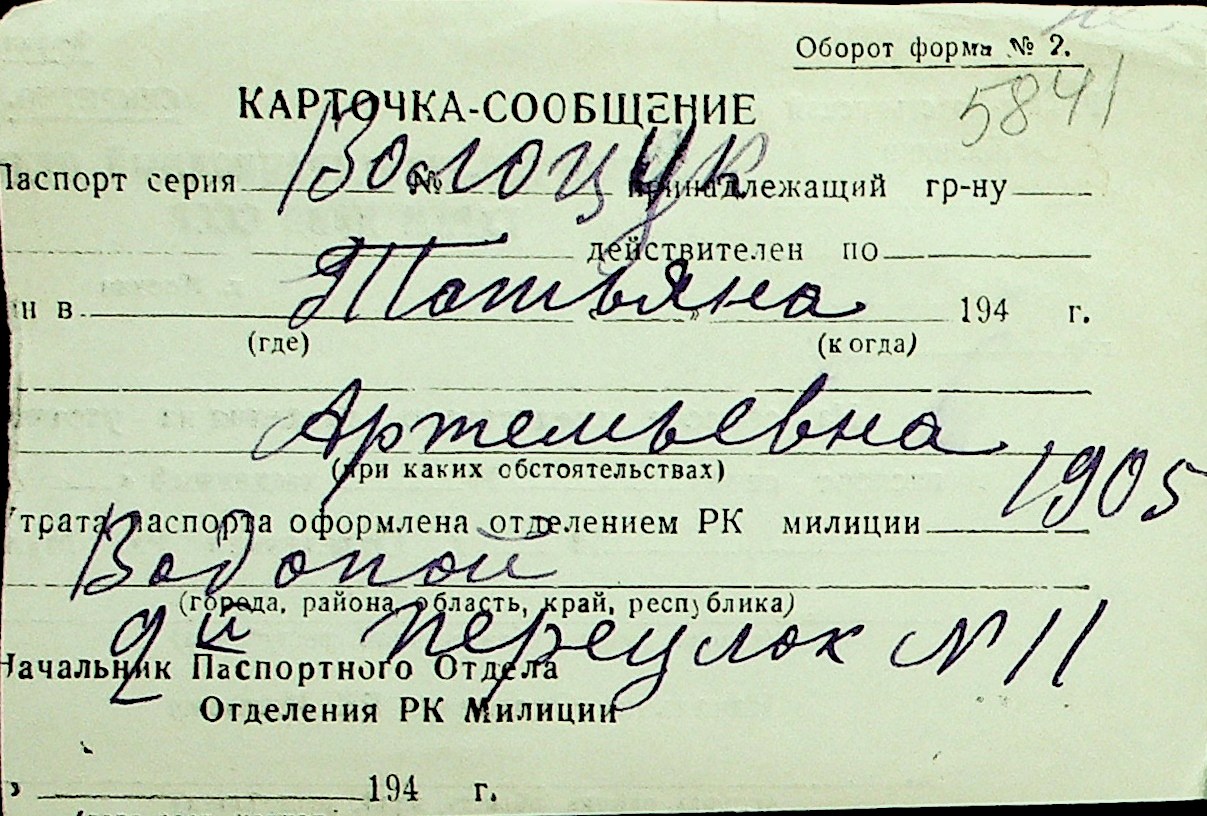 Оборот форма № 2.
5841
КАРТОЧКА-СООБЩЕНИЕ
Волоцук
Паспорт серия № принадлежащий гр-ну
действителен по
Татьяна
ин в 194 г.
(где) (когда)
Артемьевна
(при каких обстоятельствах)
1905
Утрата паспорта оформлена отделением РК милиции
Водопой
(города, района, область, край, республика)
2й переулок N 11
Начальник Паспортного Отдела
Отделения РК Милиции
" 194 г.